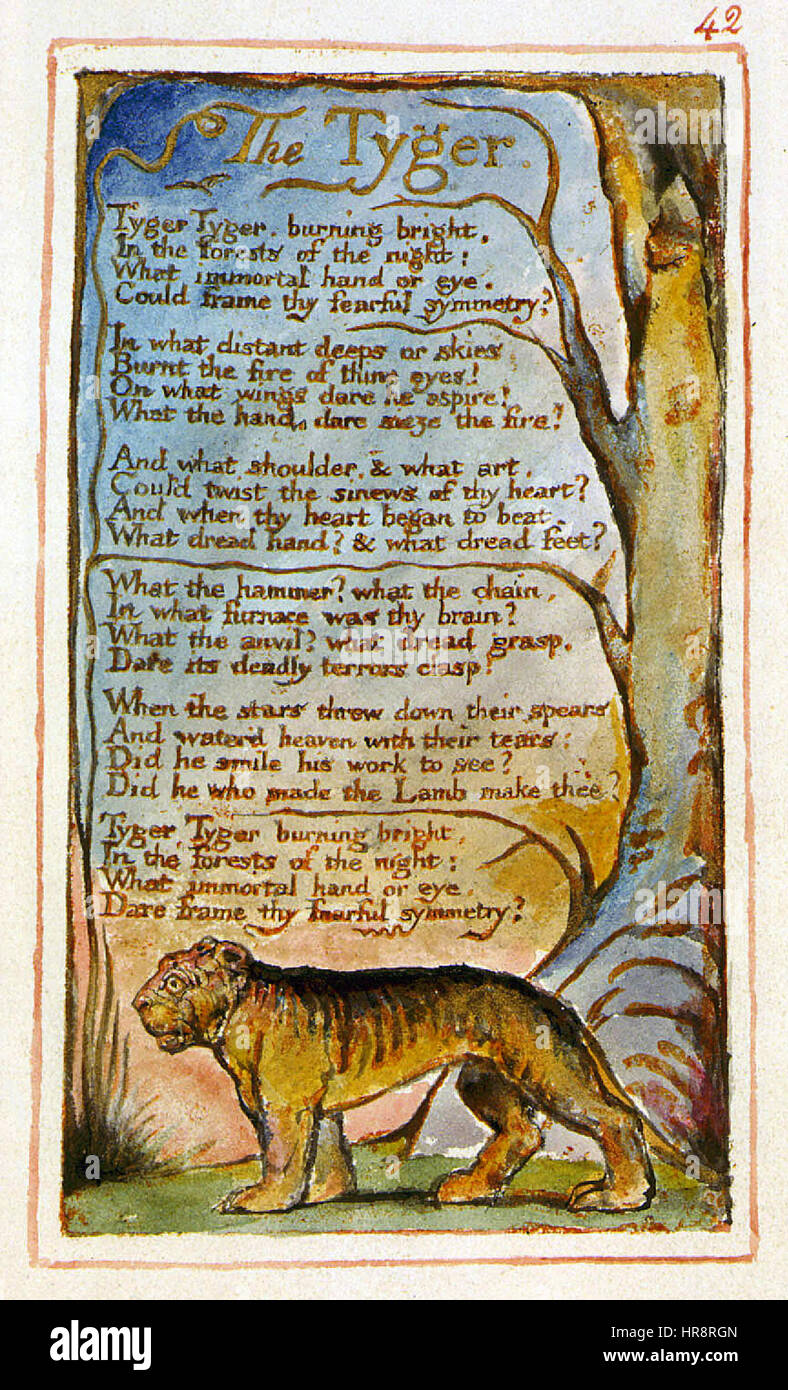 42
The Tyger.
Tyger Tyger. burning bright,
In the forests of the night:
What immortal hand or eye.
Could frame thy fearful symmetry?
In what distant deeps or skies.
Burnt the fire of thine eyes!
On what wings dare he aspire!
What the hand, dare sieze the fire?
And what shoulder, & what art,
Could twist the sinews of thy heart?
And when thy heart began to beat.
What dread hand? & what dread feet?
What the hammer? what the chain,
In what furnace was thy brain?
What the anvil? what dread grasp.
Dare its deadly terrors clasp!
When the stars threw down their spears
And water'd heaven with their tears:
Did he smile his work to see?
Did he who made the Lamb make thee?
Tyger, Tyger burning bright,
In the forests of the night:
What immortal hand or eye.
Dare frame thy fearful symmetry?
alamy
alamy stock photo
HR8RGN
www.alamy.com